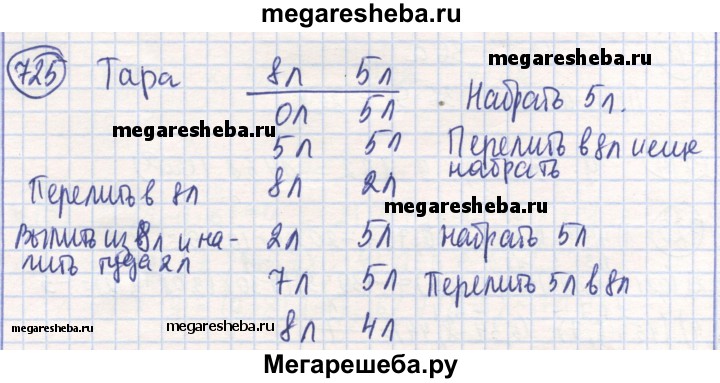 megaresheba.ru
725 Тара 8л 5л
0л 5л Набрать 5л.
5л 5л Перелить в 8л и еще набрать
Перелить в 8л 8л 2л
Вылить из 8л и на-
лить туда 2л 2л 5л набрать 5л
7л 5л Перелить 5л в 8л
8л 4л
megaresheba.ru
megaresheba.ru
megaresheba.ru
megaresheba.ru
megaresheba.ru
Мегарешеба.ру